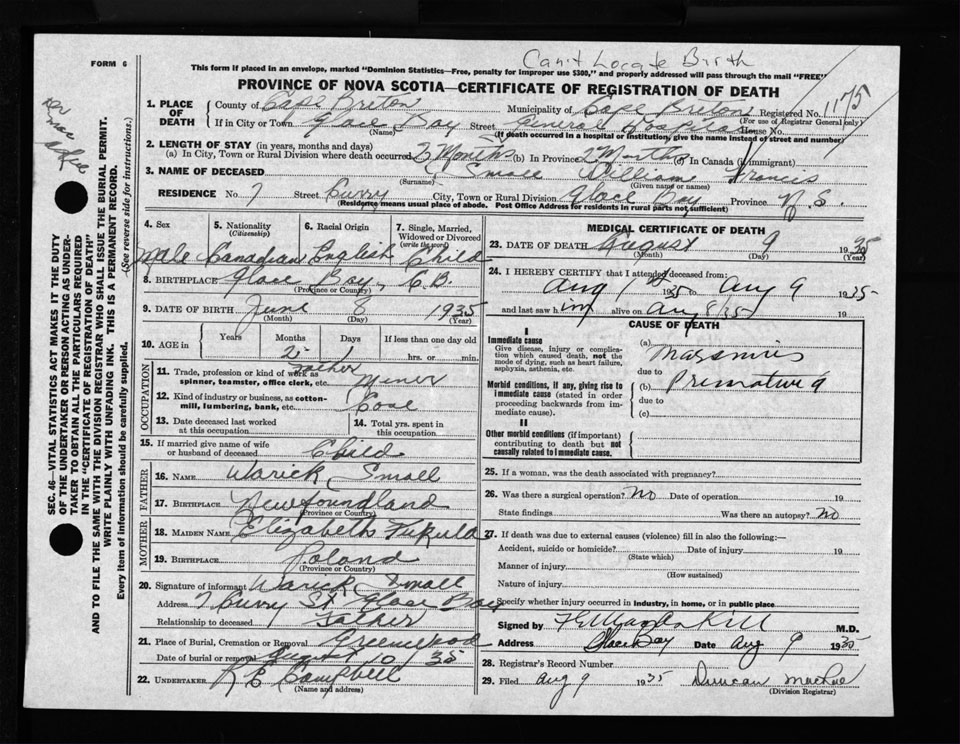 Can't Locate Birth
FORM 6
This form if placed in an envelope, marked "Dominion Statistics—Free, penalty for improper use $300," and properly addressed will pass through the mail "FREE"
PROVINCE OF NOVA SCOTIA—CERTIFICATE OF REGISTRATION OF DEATH
1175
1. PLACE OF DEATH
County of Cape Breton Municipality of Cape Breton Registered No.
(For use of Registrar General only)
If in City or Town Glace Bay Street General Hospital House No.
(Name) (If death occurred in a hospital or institution, give the name instead of street and number)
2. LENGTH OF STAY (in years, months and days)
(a) In City, Town or Rural Division where death occurred 2 Months (b) In Province 2 Months (c) In Canada (if immigrant)
3. NAME OF DECEASED Small William Francis
(Surname) (Given name or names)
RESIDENCE No. 7 Street Curry City, Town or Rural Division Glace Bay Province N.S.
(Residence means usual place of abode. Post Office Address for residents in rural parts not sufficient)
4. Sex
5. Nationality (Citizenship)
6. Racial Origin
7. Single, Married, Widowed or Divorced (write the word)
Male Canadian English Child
8. BIRTHPLACE Glace Bay, C.B.
(Province or Country)
9. DATE OF BIRTH June 8 1935
(Month) (Day) (Year)
10. AGE in Years Months Days If less than one day old
2 1 hrs. or min.
OCCUPATION
11. Trade, profession or kind of work as spinner, teamster, office clerk, etc. Father Miner
12. Kind of industry or business, as cotton-mill, lumbering, bank, etc.
13. Date deceased last worked at this occupation
14. Total yrs. spent in this occupation
15. If married give name of wife or husband of deceased Child
FATHER
16. NAME Warick Small
17. BIRTHPLACE Newfoundland
(Province or Country)
MOTHER
18. MAIDEN NAME Elizabeth
19. BIRTHPLACE Poland
(Province or Country)
20. Signature of informant Warick Small
Address 7 Curry St. Glace Bay
Relationship to deceased Father
21. Place of Burial, Cremation or Removal Greenwood
Date of burial or removal August 10 35
22. UNDERTAKER Campbell
(Name and address)
MEDICAL CERTIFICATE OF DEATH
23. DATE OF DEATH August 9 1935
(Month) (Day) (Year)
24. I HEREBY CERTIFY that I attended deceased from:
Aug 1 1935 to Aug 9 1935
and last saw him alive on Aug 8/35 19
CAUSE OF DEATH
I
Immediate cause
Give disease, injury or complication which caused death, not the mode of dying, such as heart failure, asphyxia, asthenia, etc.
(a) Marasmus
due to
Morbid conditions, if any, giving rise to immediate cause (stated in order proceeding backwards from immediate cause).
(b)
due to
(c)
II
Other morbid conditions (if important) contributing to death but not causally related to immediate cause.
25. If a woman, was the death associated with pregnancy?
26. Was there a surgical operation? No Date of operation 19
State findings Was there an autopsy? No
27. If death was due to external causes (violence) fill in also the following:—
Accident, suicide or homicide? Date of injury 19
(State which)
Manner of injury
(How sustained)
Nature of injury
Specify whether injury occurred in industry, in home, or in public place
Signed by M.D.
Address Glace Bay Date Aug 9 1935
28. Registrar's Record Number
29. Filed Aug 9 1935 Duncan
(Division Registrar)
SEC. 46—VITAL STATISTICS ACT MAKES IT THE DUTY OF THE UNDERTAKER OR PERSON ACTING AS UNDERTAKER TO OBTAIN ALL THE PARTICULARS REQUIRED IN THE "CERTIFICATE OF REGISTRATION OF DEATH" AND TO FILE THE SAME WITH THE DIVISION REGISTRAR WHO SHALL ISSUE THE BURIAL PERMIT.
WRITE PLAINLY WITH UNFADING INK. THIS IS A PERMANENT RECORD.
Every item of information should be carefully supplied. (See reverse side for instructions.)